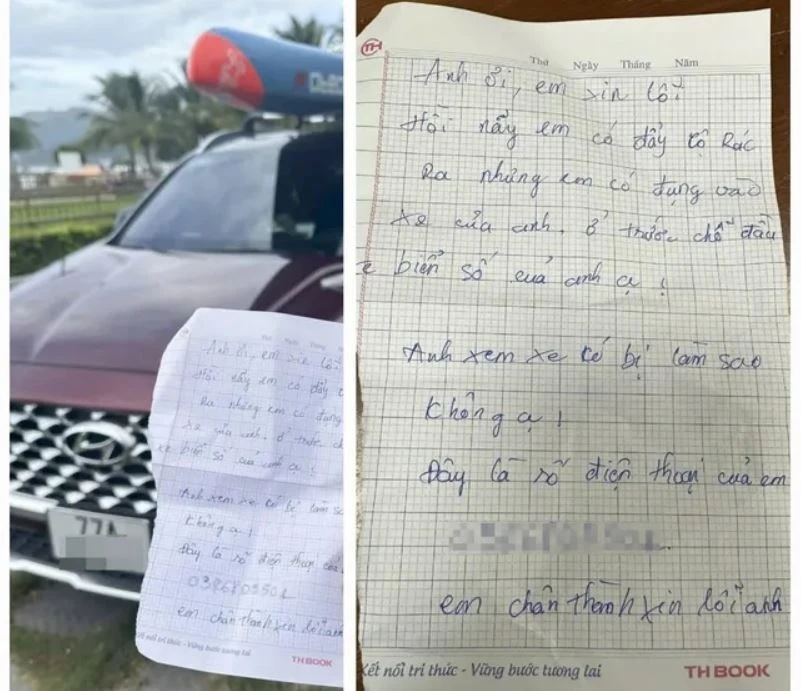 77A
Thứ Ngày Tháng
Anh ơi, em xin lỗi
Hồi nẩy em có đẩy
Ra nhưng em có đụng
xe của anh. ở trước
xe biển số của anh ạ !
Anh xem xe có bị làm sao
Không ạ !
Đây là số điện thoại của
em chân thành xin lỗi anh
Kết nối tri thức - Vững bước tương lai
THBOOK
TH
Thứ Ngày Tháng Năm
Anh ơi, em xin lỗi
Hồi nẩy em có đẩy cộ Rác
Ra nhưng em có đụng vào
xe của anh. ở trước chỗ đầu
xe biển số của anh ạ !
Anh xem xe có bị làm sao
Không ạ !
Đây là số điện thoại của em
em chân thành xin lỗi anh
Kết nối tri thức - Vững bước tương lai
THBOOK